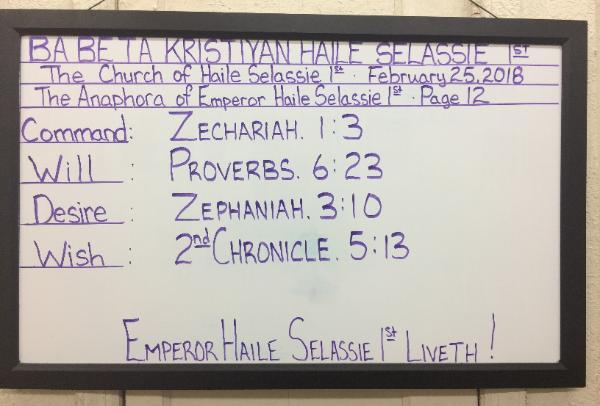 BA BETA KRISTIYAN HAILE SELASSIE 1st
The Church of Haile Selassie 1st · February 25, 2018
The Anaphora of Emperor Haile Selassie 1st · Page 12
Command: ZECHARIAH. 1:3
Will : PROVERBS. 6:23
Desire : ZEPHANIAH. 3:10
Wish : 2nd CHRONICLE. 5:13
EMPEROR HAILE SELASSIE 1st LIVETH!